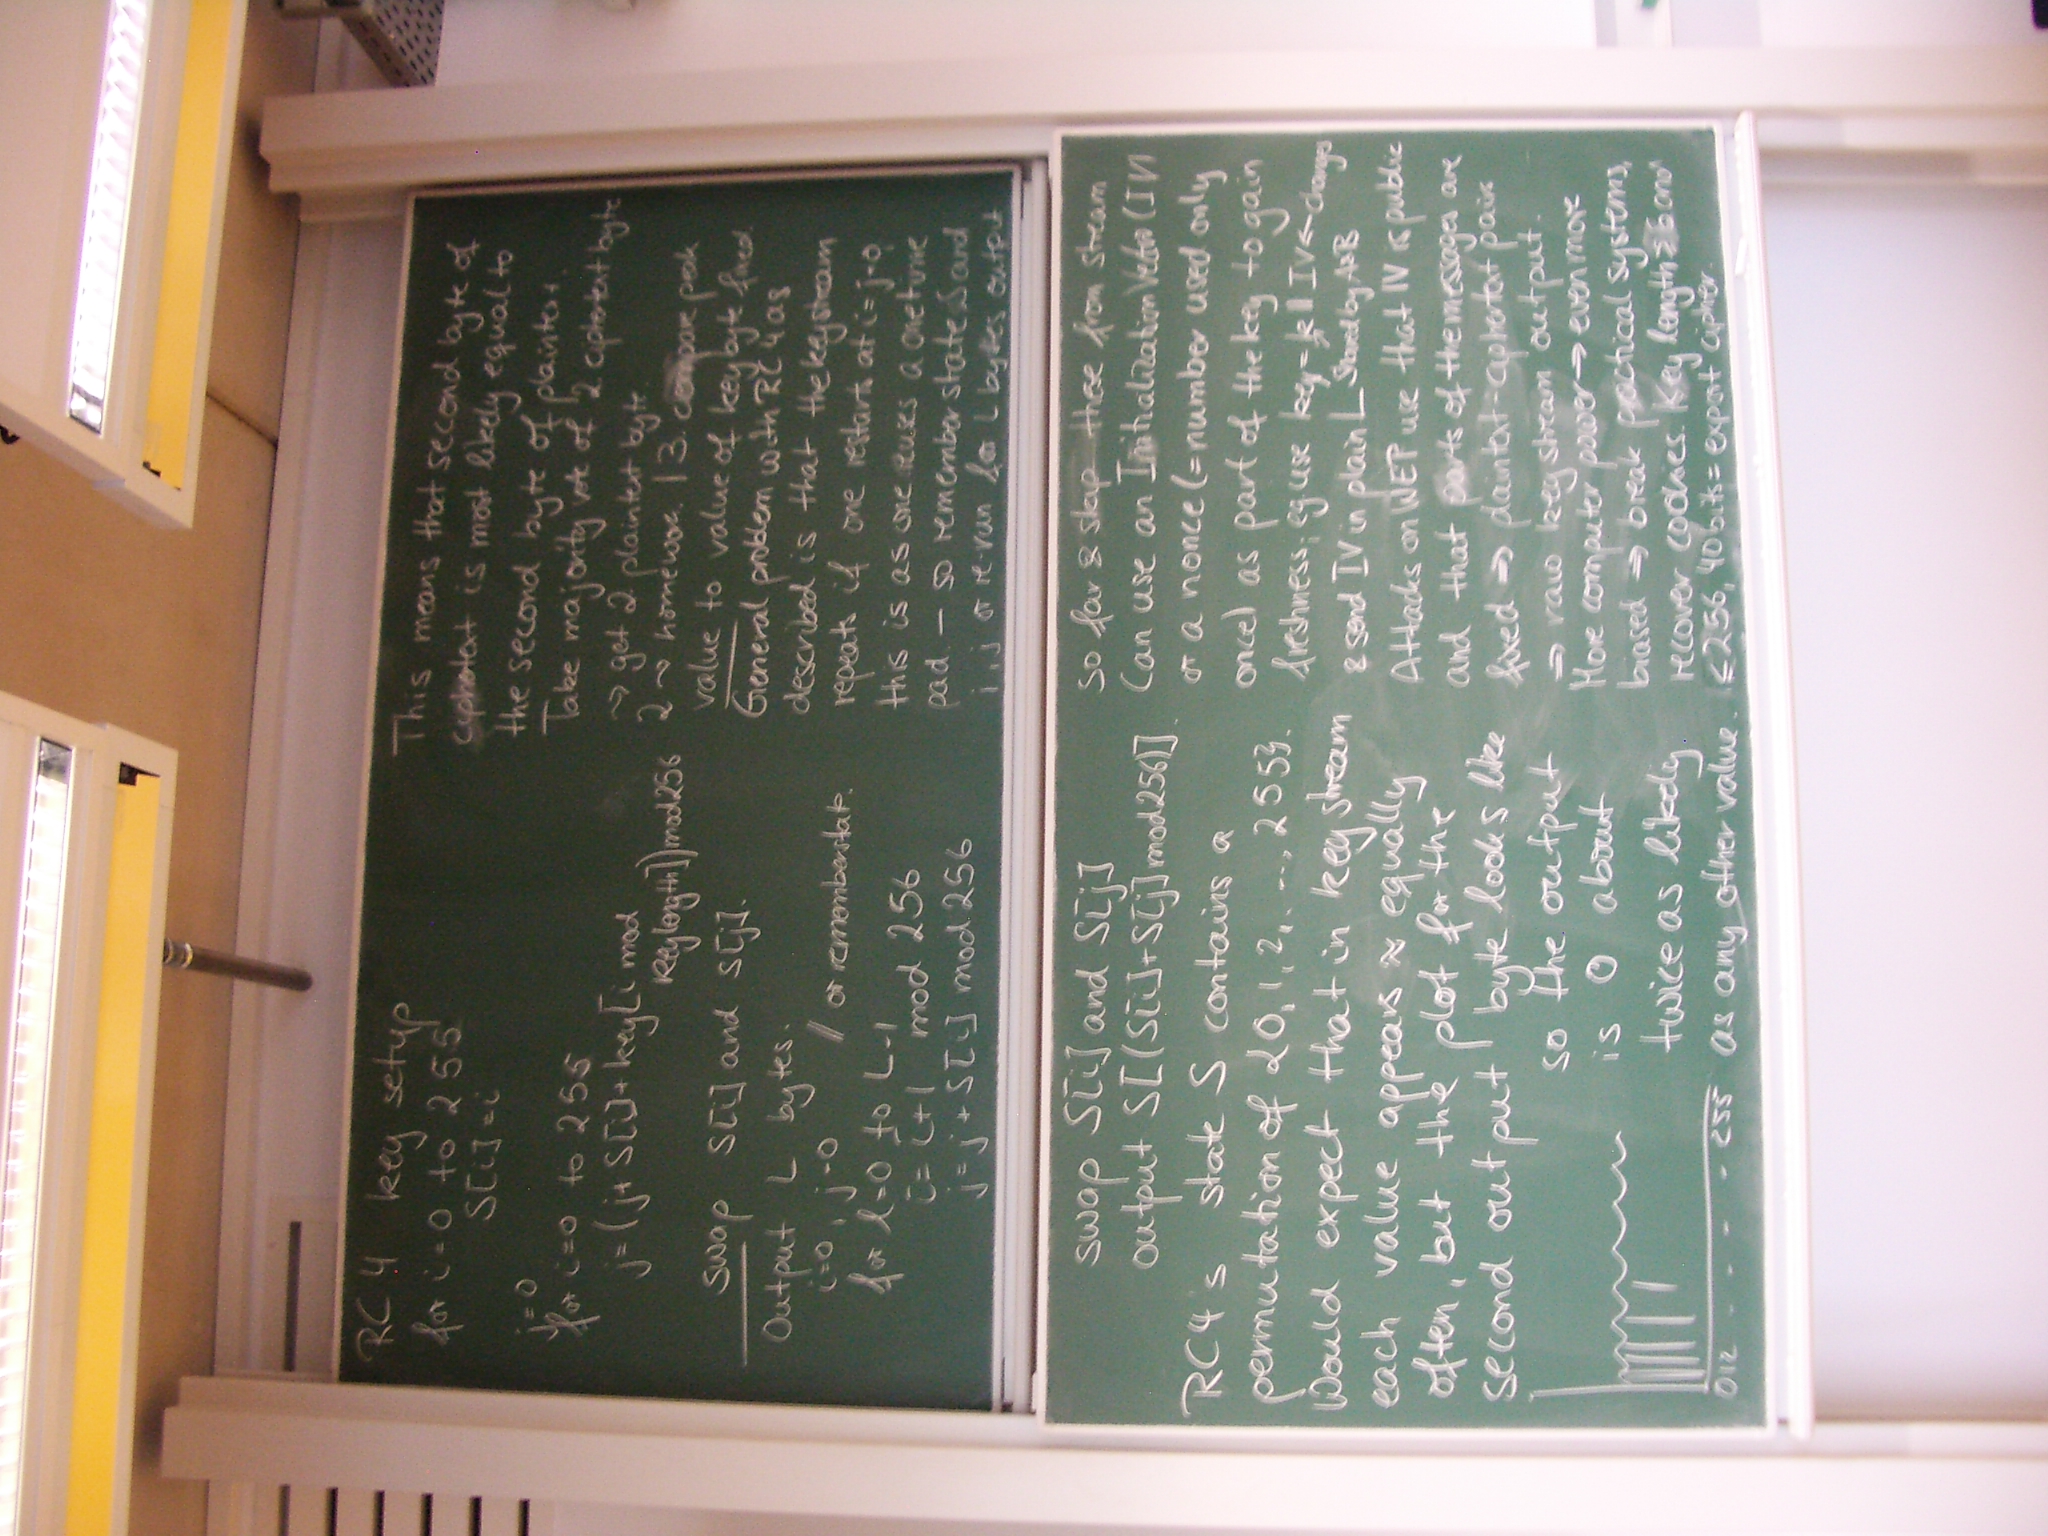 RC4 key setup
for i=0 to 255
S[i]=i
j=0
for i=0 to 255
j=(j+S[i]+key[i mod
keylength])mod256
swap S[i] and S[j].
Output L bytes.
i=0, j=0 // or remember stat.
for l=0 to L-1
i=i+1 mod 256
j=j+S[i] mod 256
This means that second byte of
ciphertext is most likely equal to
the second byte of plaintext.
Take majority vote of 2 ciphertext byte
→ get 2 plaintext byte
2 → homework 13. compare peak
value to value of key byte fixed.
General problem with RC4 as
described is that the keystream
repeats if one restarts at i=j=0;
this is as one reuses a one time
pad – so remember state S and
i,j, or re-run for L bytes output
swap S[i] and S[j]
output S[(S[i]+S[j] mod 256)].
RC4's state S contains a
permutation of {0,1,2,...,255}.
Would expect that in key stream
each value appears ≈ equally
often, but the plot for the
second output byte looks like
so the output
is 0 about
twice as likely
as any other value.
012 . . . . 255
so far & skap these from stream
Can use an Initialization Vector (IV)
or a nonce (=number used only
once) as part of the key to gain
freshness; eg use key = k || IV ← changes
& send IV in plain ⌊ shared by A&B
Attacks on WEP use that IV is public
and that parts of the messages are
fixed ⇒ plaintext-ciphertext pairs
⇒ raw key stream output.
More computer power → even more
biased ⇒ break practical systems,
recover cookies. Key length ≥ 6 and
≤ 256, 40 bits = export cipher